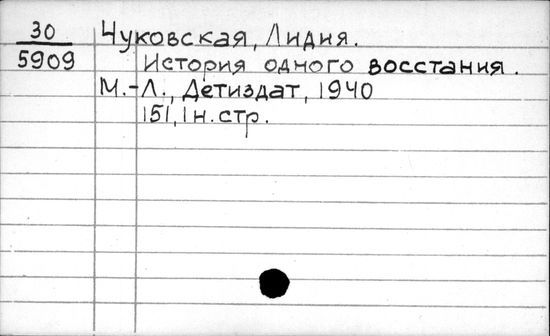 30
5909
Чуковская, Лидия.
История одного восстания.
М.-Л., Детиздат, 1940
151, 1 н. стр.